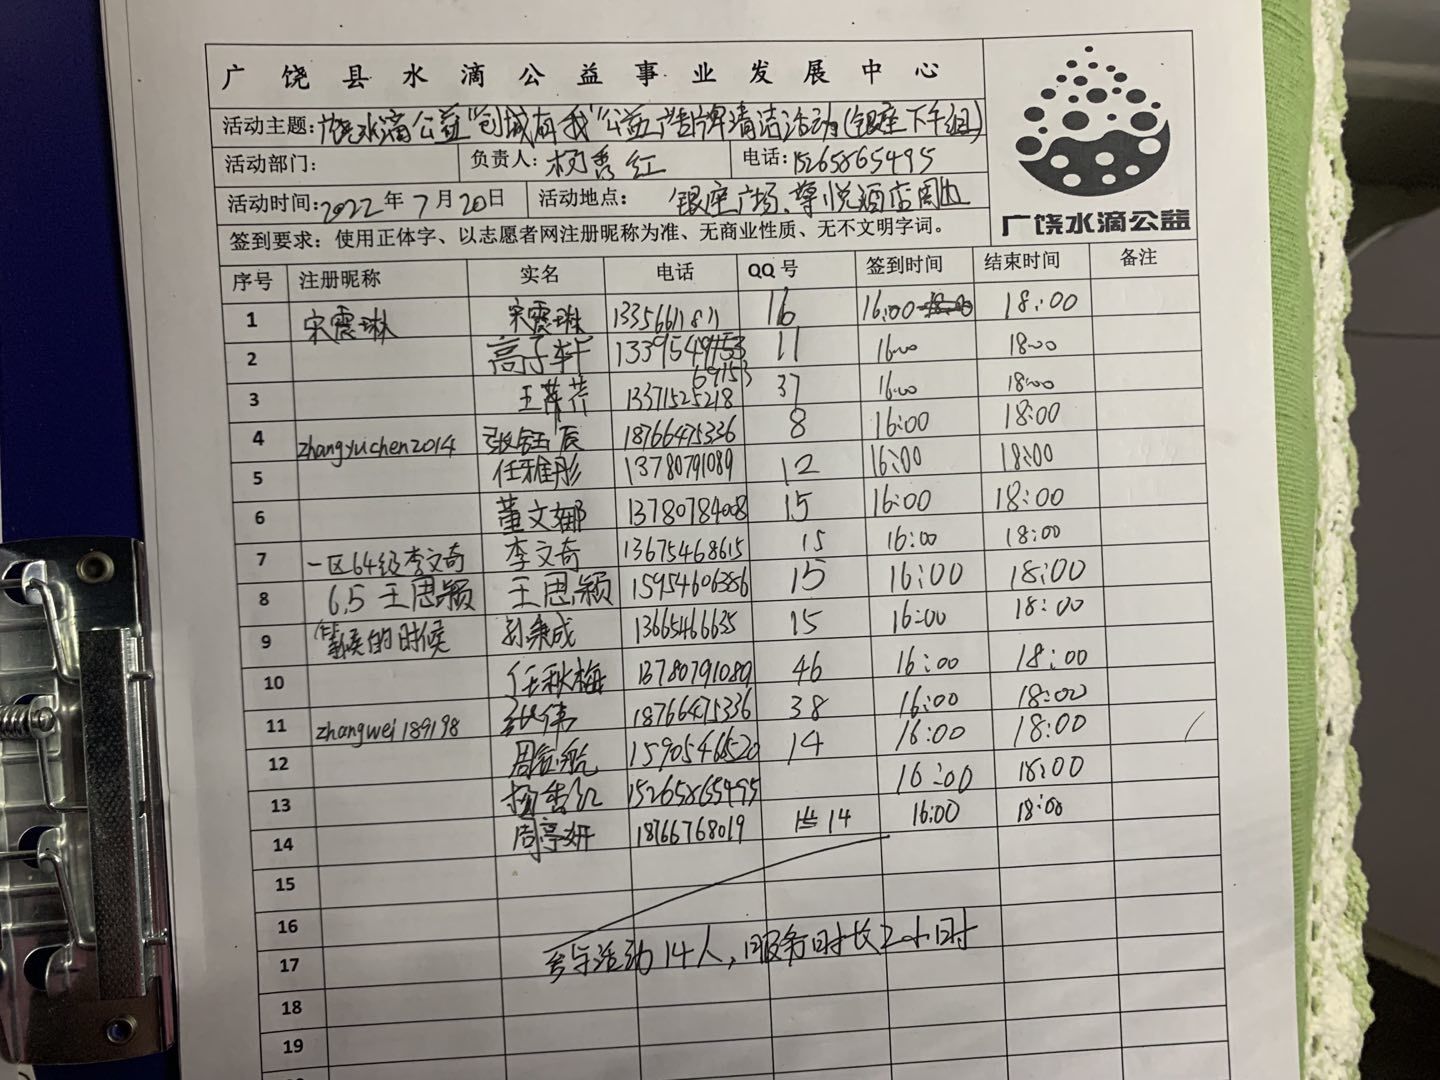 广饶县水滴公益事业发展中心
活动主题:广饶水滴公益"创城有我"公益广告牌清洁活动(银座下午组)
活动部门: 负责人:杨秀红 电话:15265865495
活动时间:2022年7月20日 活动地点: 银座广场、尊悦酒店周边
签到要求:使用正体字、以志愿者网注册昵称为准、无商业性质、无不文明字词。
广饶水滴公益
序号 注册昵称 实名 电话 QQ号 签到时间 结束时间 备注
1 宋震琳 宋震琳 13356611811 16 16:00 18:00
2 高子轩 1339549 69153 11 16:00 18:00
3 王 13371525218 37 16:00 18:00
4 zhangyuchen2014 张钰辰 18766475336 8 16:00 18:00
5 任雅彤 13780791089 12 16:00 18:00
6 董文娜 13780784008 15 16:00 18:00
7 一区64级李文奇 李文奇 13675468615 15 16:00 18:00
8 6.5王思颖 王思颖 15954606386 15 16:00 18:00
9 的时候 孙秉成 13665466635 15 16:00 18:00
10 任秋梅 13780791089 46 16:00 18:00
11 zhangwei189198 张伟 18766475336 38 16:00 18:00
12 周 航 15905466520 14 16:00 18:00
13 杨秀红 15265865495 16:00 18:00
14 周亭妍 18766768019 14 16:00 18:00
15
16
17 参与活动14人,服务时长2小时
18
19